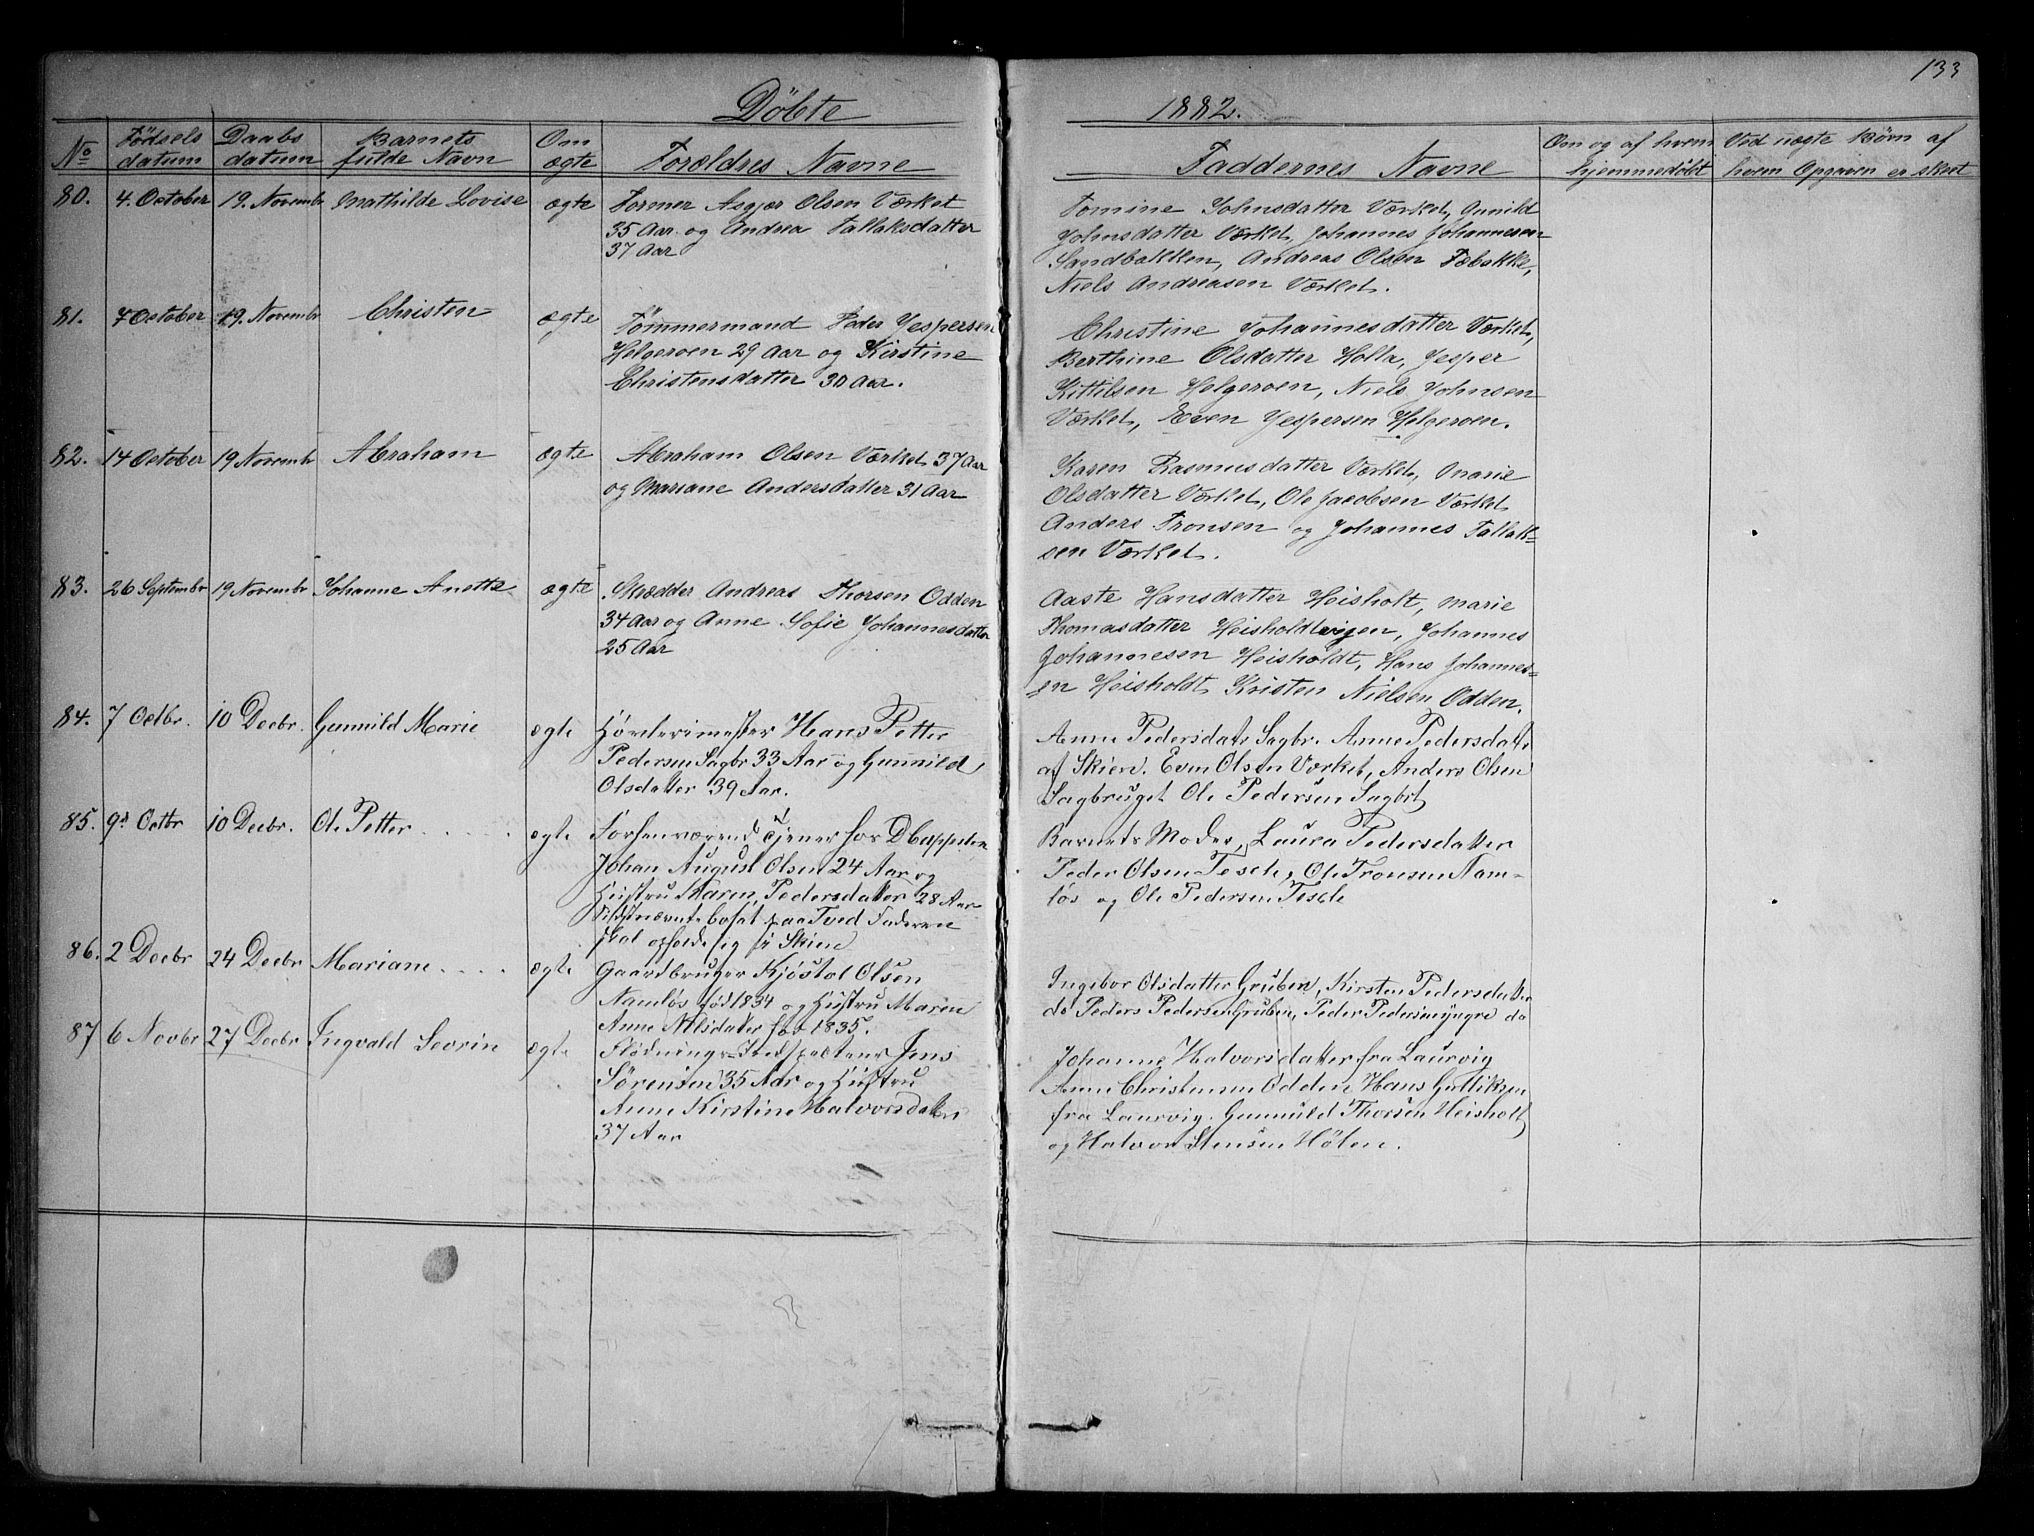 133
Döbte 1882.
No Födsels datum Daabs datum Barnets fulde Navn Om ægte Forældres Navne
Faddernes Navne Om og af hvem hjemmedöbt Ved uægte Börn af hvem Opgaven er skeet
80. 4. October 19. Novembr Mathilde Lovise ægte Former Asgjer Olsen Værket
35 Aar og Andrea Tallaksdatter
37 Aar
Tomine Johnsdatter Værket, Gunild
Johnsdatter Værket, Johannes Johannesen
Sandbakken, Andreas Olsen Fæbakke,
Niels Andreasen Værket.
81. 7 October 19. Novembr Christen ægte Tömmermand Peder Jespersen
Helgeroen 29 Aar og Kirstine
Christensdatter 30 Aar.
Christine Johannesdatter Værket,
Berthine Olsdatter Holla, Jesper
Kittilsen Helgeroen, Niels Johnsen
Værket, Even Jespersen Helgeroen.
82. 14 October 19 Novembr Abraham ægte Abraham Olsen Værket 37 Aar
og Mariane Andersdatter 31 Aar
Karen Rasmusdatter Værket, Marie
Olsdatter Værket, Ole Jacobsen Værket
Anders Tronsen og Johannes Tallak=
sen Værket.
83. 26 Septembr 19 Novembr Johanne Anette ægte Skrædder Andreas Thorsen Odden
34 Aar og Anne Sofie Johannesdatter
25 Aar
Aaste Hansdatter Heisholt, Marie
Thomasdatter Heisholdtvigen, Johannes
Johannesen Heisholdt, Hans Johannes=
en Heisholdt Kristen Nielsen Odden.
84. 7 Octbr. 10 Decbr. Gunnild Marie ægte Høvlerimester Hans Petter
Pedersen Sagbr 33 Aar og Gunnild
Olsdatter 39 Aar.
Anne Pedersdatr Sagbr. Anne Pedersdatr
af Skien. Even Olsen Værket, Anders Olsen
Sagbruget Ole Pedersen Sagbrt
85. 9d Octbr 10 Decbr. Ole Petter ægte Forhenværende Tjener hos
Johan August Olsen 24 Aar og
Hustru Karen Pedersdatter 28 Aar
Sidstnævnte bosat paa Tved Faderen
skal opholde sig i Skien
Barnets Moder, Laura Pedersdatter
Peder Olsen Tesche, Ole Tronsen Nam-
lös og Ole Pedersen Tesche
86. 2 Decbr 24 Decbr Mariane ægte Gaardbruger Kjöstol Olsen
Namlös född 1834 og Hustru Maren
Anne Nilsdatter föd 1835.
Ingebor Olsdatter Gruben, Kirsten Pedersdatter
do Peders Pedersen Gruben, Peder Pedersen yngre do
87 6 Novbr 27 Decbr Ingvald Sevrin ægte Flödnings-Inspecteur Jens
Sörensen 35 Aar og Hustru
Anne Kirstine Halvorsdatter
37 Aar
Johanne Halvorsdatter fra Laurvig
Anne Christensen Odden Hans Gulliksen
fra Laurvig. Gunnuld Thorsen Heisholt
og Halvor Stensen Hölen.